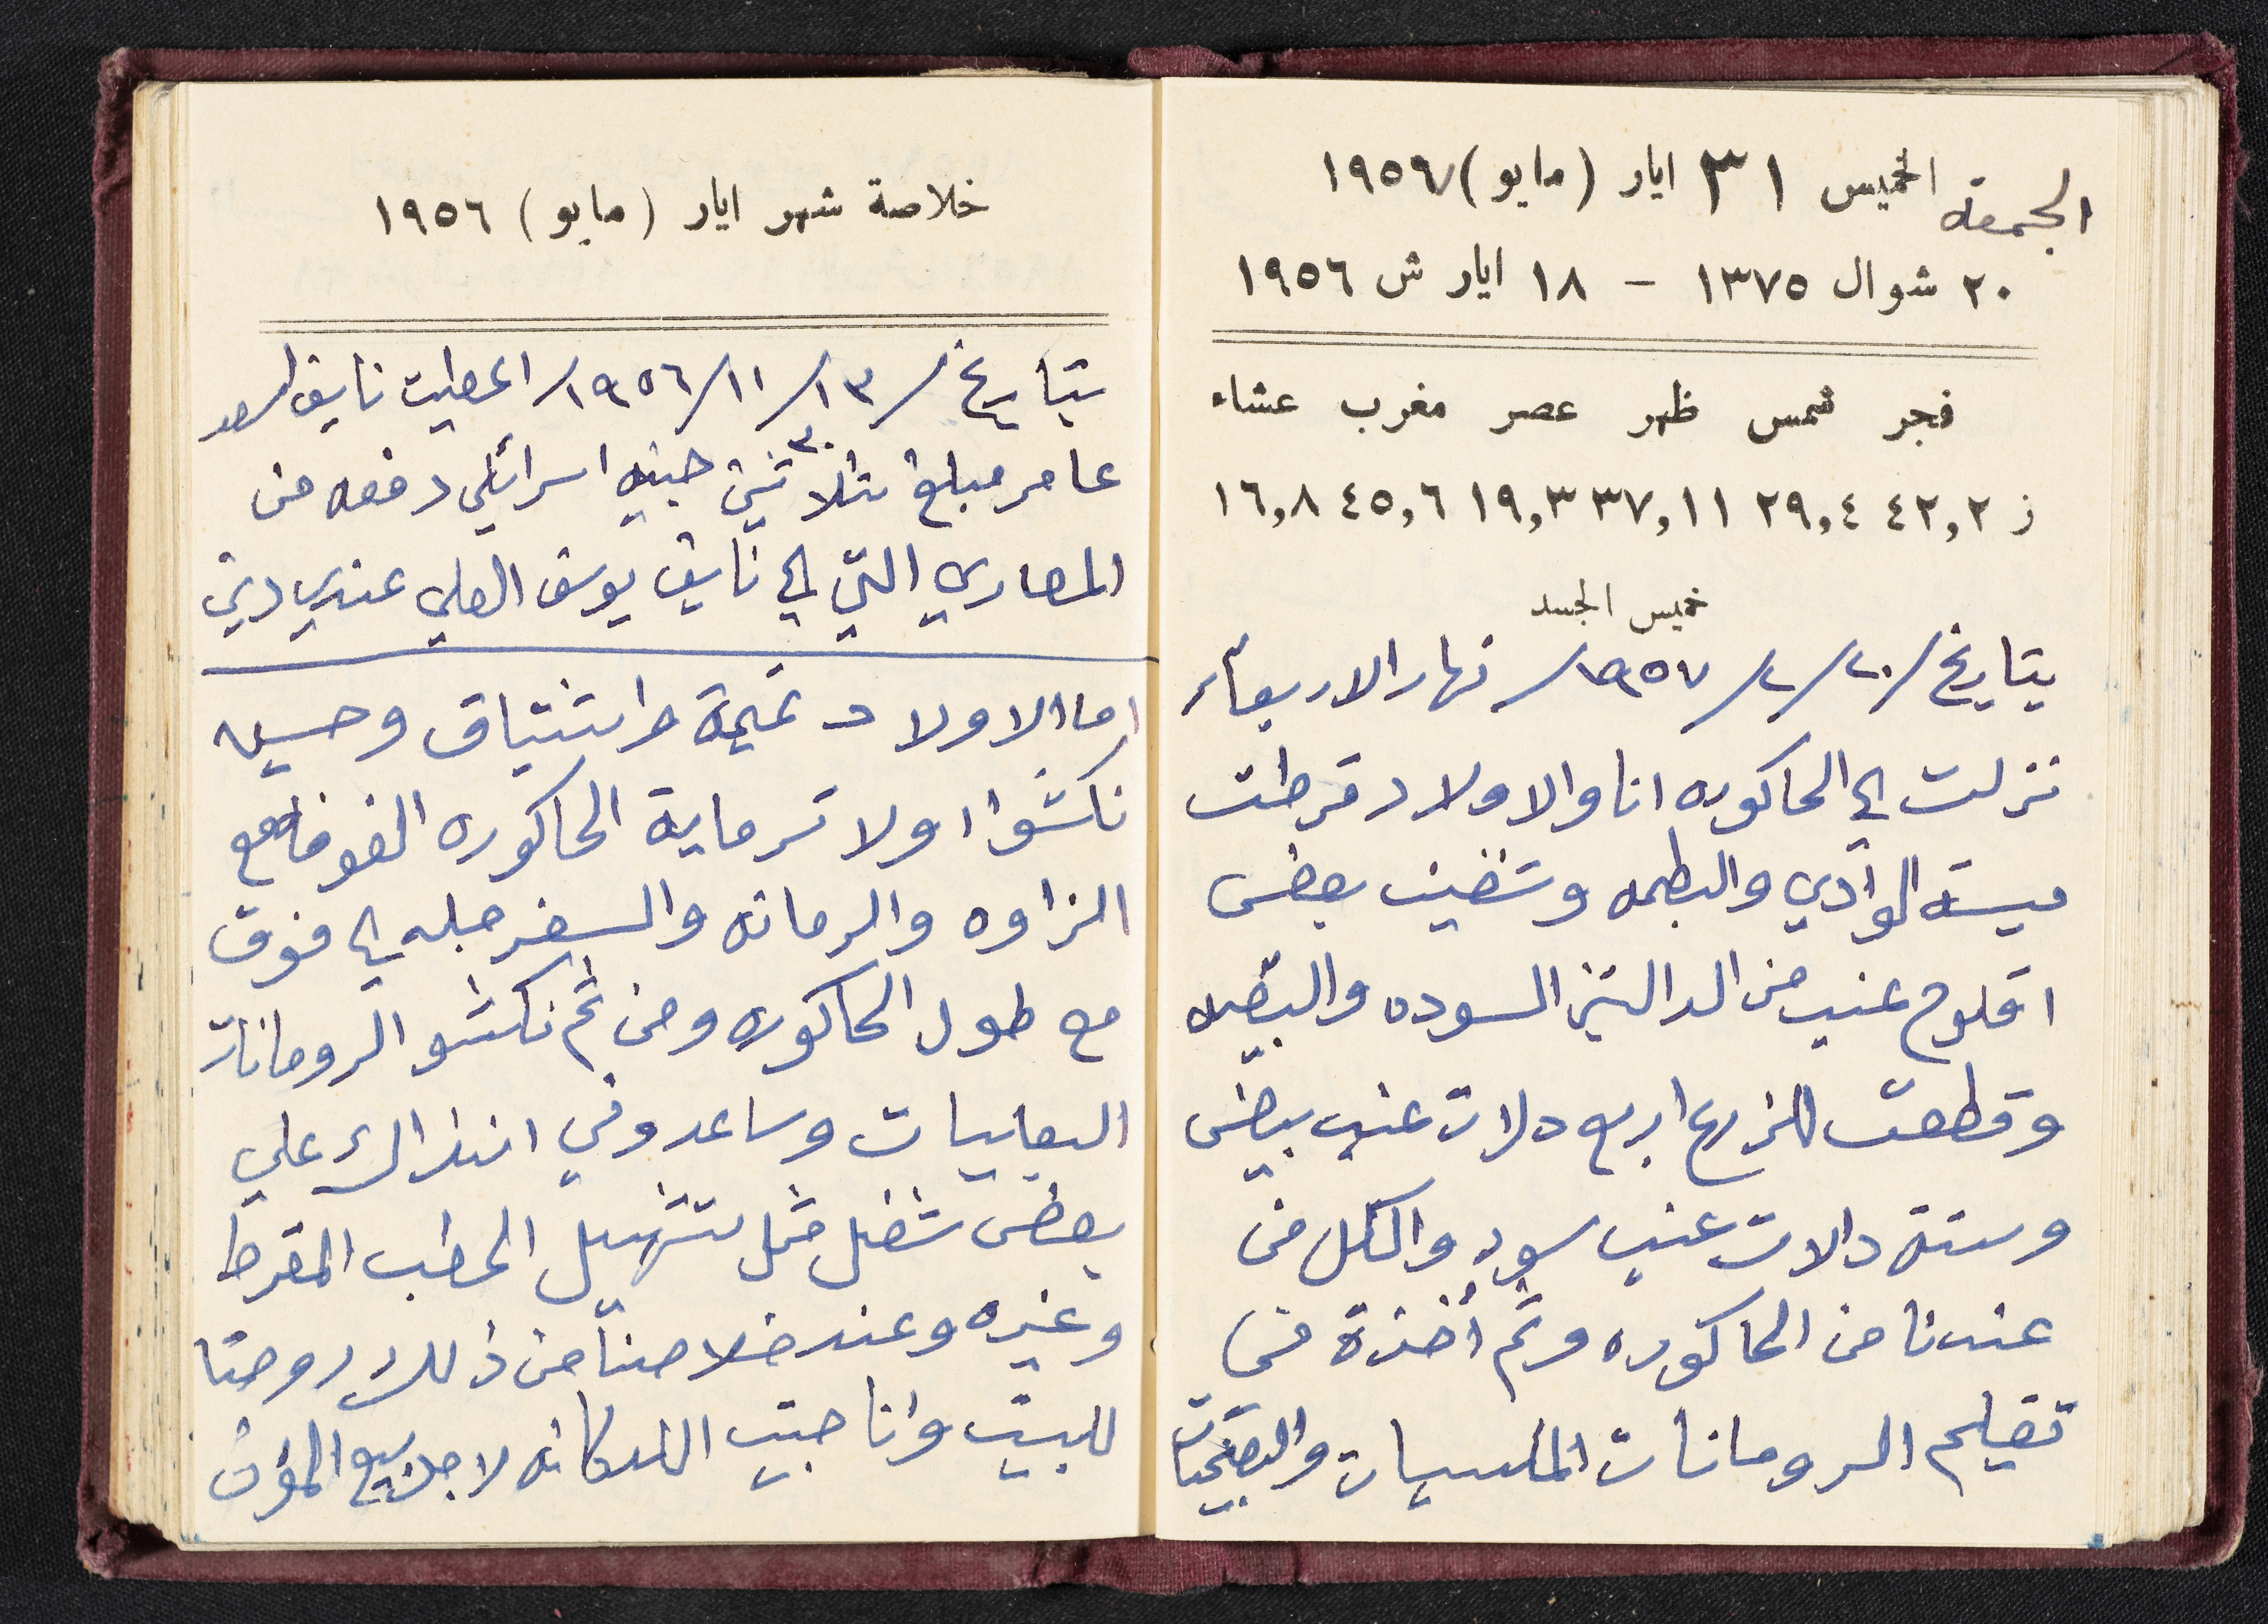 الجمعة الخميس ٣١ ايار (مايو) ١٩٥٦
٢٠ شوال ١٣٧٥ - ١٨ ايار ش ١٩٥٦
فجر شمس ظهر عصر مغرب عشاء
ز ٤٢,٢ ٢٩,٤ ٣٧,١١ ١٩,٣ ٤٥,٦ ١٦,٨
خميس الجسد
بتاريخ /٢٠/٢/١٩٥٧/ نهار الاربعاء
نزلت الى الحاكوره انا والاولاد قرطت
ميسة الوادي والبطمه وتضيف بعض
اقلوم عنب من الدالتين السوده والبيضه
وقطعت للزرع اربع دلات عنب بيض
وستة دالات عنب سود والكل من
عندنا من الحاكوره وتم أخذة في
تقليم الرومانات المليسيات والبعيبات
خلاصة شهر ايار (مايو) ١٩٥٦
بتاريخ /١٣/١١/١٩٥٦/ اعطيت نايف اسعد
عامر مبلغ ثلاثين ٣٠ جنيه اسرائلي دفعه من
المصاري التي الى نايف يوسف العلي عندي دين
اما الاولاد تميمة واشتياق وحسيبه
نكشوا اولا ترماية الحاكوره الفوقا مع
الزاوه والرمانه والسفرجله الى فوق
مع طول الحاكوره ومن ثم نكشو الرومانات
البعابيات وساعدوني انذاك علي
بعض شغل مثل تشهيل الحطب المقرط
وغيره وعند خلاصنا من ذلك روحنا
للبيت وانا جيت الدكانه لاجل بيع المؤن